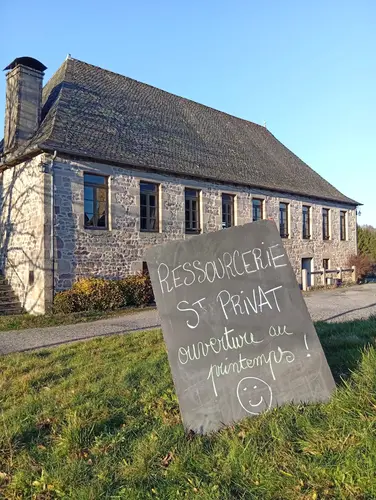 RESSOURCERIE
ST PRIVAT
ouverture au
printemps !